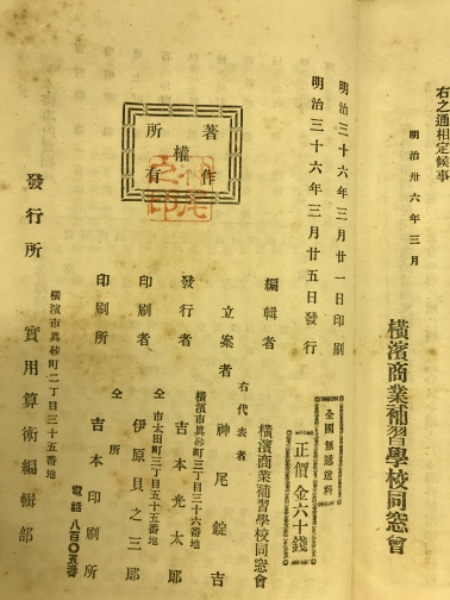 右之通相定候事
明治卅六年三月
横濱商業補習學校同窓會
明治三十六年三月廿一日印刷
明治三十六年三月廿五日發行
全國無遞送料
正價金六十錢
著作
權
所有
神尾之印
編輯者
横濱商業補習學校同窓會
右代表者
立案者
神尾錠吉
横濱市眞砂町三丁目三十六番地
發行者
吉本光太郎
仝市太田町三丁目五十五番地
印刷者
伊原貝之三郎
仝所
印刷所
吉本印刷所
電話八百〇五番
横濱市眞砂町二丁目三十五番地
發行所
實用算術編輯部